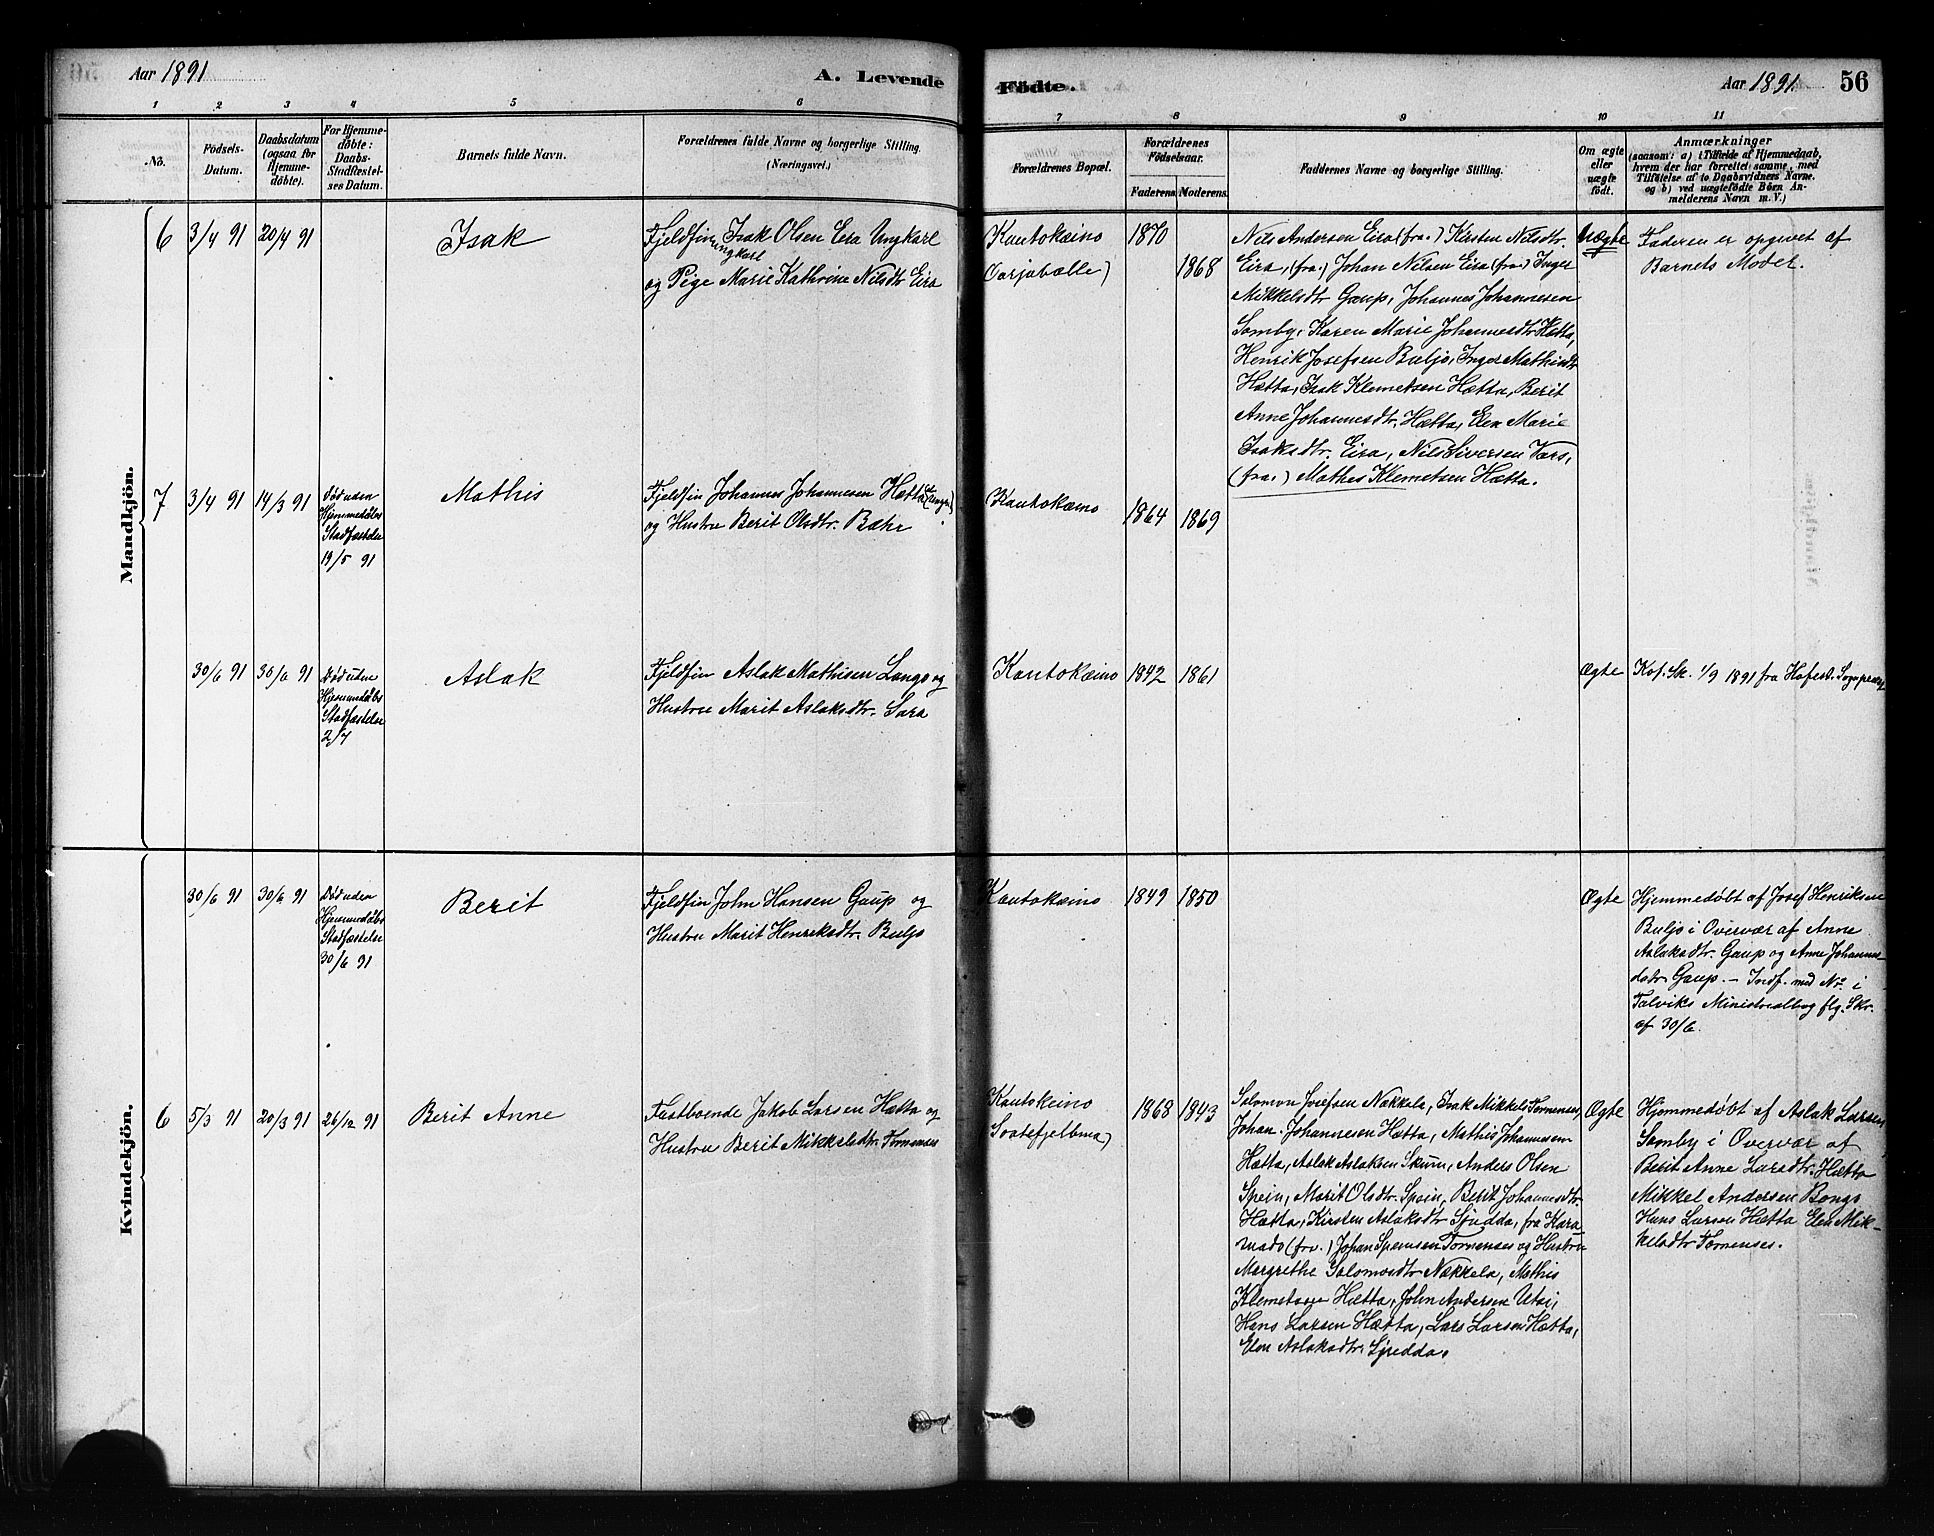 Aar 1891
A. Levende
1 2 3 4 5 6
No.
Födsels-
Datum.
Daabsdatum
(ogsaa for
Hjemme-
döbte).
For Hjemme-
døbte:
Daabs-
Stadfæstel-
ses Datum.
Barnets fulde Navn.
Forældrenes fulde Navne og borgerlige Stilling.
(Næringsvei.)
Mandkjön.
6 3/4 91 20/4 91 Isak
Fjeldfin Isak Olsen Eira Ungkarl
ungkarl
og Pige Marie Kathrine Nilsdtr Eira
7 3/4 91 14/3 91
Död uden
Hjemmedøbs
Stadfæstelse
19/5 91
Mathis
Fjeldfin Johannes Johannesen Hætta
og Hustru Berit Olsdtr. Bæhr
30/6 91 30/6 91
Död uden
Hjemmedøbs
Stadfæstelse
2/7
Aslak
Fjeldfin Aslak Mathisen Lango og
Hustru Marit Aslaksdtr. Sara
Kvindekjön.
30/6 91 30/6 91
Död uden
Hjemmedøbs
Stadfæstelse
30/6 91
Berit
Fjeldfin John Hansen Gaup og
Hustru Marit Henriksdtr. Buljo
6 5/3 91 20/3 91 26/12 91 Berit Anne
Fastboende Jakob Larsen Hætta og
Hustru Berit Mikkelsdtr. Tornenses
Födte.
Aar 1891. 56
7 8 9 10 11
Forældrenes Bopæl.
Forældrenes
Födselsaar.
Faderens. Moderens.
Faddernes Navne og borgerlige Stilling.
Om ægte
eller
uægte
födt.
Anmærkninger
(saasom: a) i Tilfælde af Hjemmedaab,
hvem der har forrettet samme, med
Tilföielse af to Daabsvidners Navne.
og b) ved uægtefödte Börn An-
melderens Navn m. V.)
Kautokeino
1870
1868
Nils Andersen Eira (fra.) Kirsten Nilsdtr.
Eira, (fra.) Johan Nilsen Eira (fra.) Inger
Mikkelsdtr Gaup, Johannes Johannesen
Somby, Karen Marie Johannesdtr Hætta,
Henrik Josefsen Buljo, Inger Mathisdtr
Hætta, Isak Klemetsen Hætta, Berit
Anne Johannesdtr. Hætta, Elen Marie
Isaksdtr. Eira, Nils Siversen Vars,
(fra.) Mathes Klemetsen Hætta.
Uægte
Faderen er opgivet af
Barnets Moder.
Kautokeino 1864 1869
Kautokeino 1842 1861
Ægte
1/9 1891 fra
Kautokeino 1849 1850
Ægte
Hjemmedøbt af Josef Henriksen
Buljo i Overvær af Anne
Aslaksdtr. Gaup og Anne Johannes-
datr Gaup. – Indf. med No. i
Talviks Ministerialbog flg. Skr.
af 30/6.
Kautokeino 1868 1843
Salomon Josefsen Nækkela, Isak Mikkels Tornenses,
Johan Johannesen Hætta, Mathis Johannesen
Hætta, Aslak Aslaksen Skum, Anders Olsen
Spein, Marit Olsdtr. Spein, Berit Johannesdtr.
Hætta, Kirsten Aslaksdtr Sjudda, fra Kara
(fra.) Johan Tornenses og Hustru
Margrethe Salomosdtr Nækkela, Mathis
Klemetsen Hætta, John Andersen Utsi,
Hans Larsen Hætta, Lars Larsen Hætta,
Elen Aslaksdtr.
Ægte
Hjemmedøbt af Aslak Larsen
Somby i Overvær af
Berit Anne Larsdtr. Hætta
Mikkel Andersen Bongo
Hans Larsen Hætta Elen Mik-
kelsdtr Tornenses.